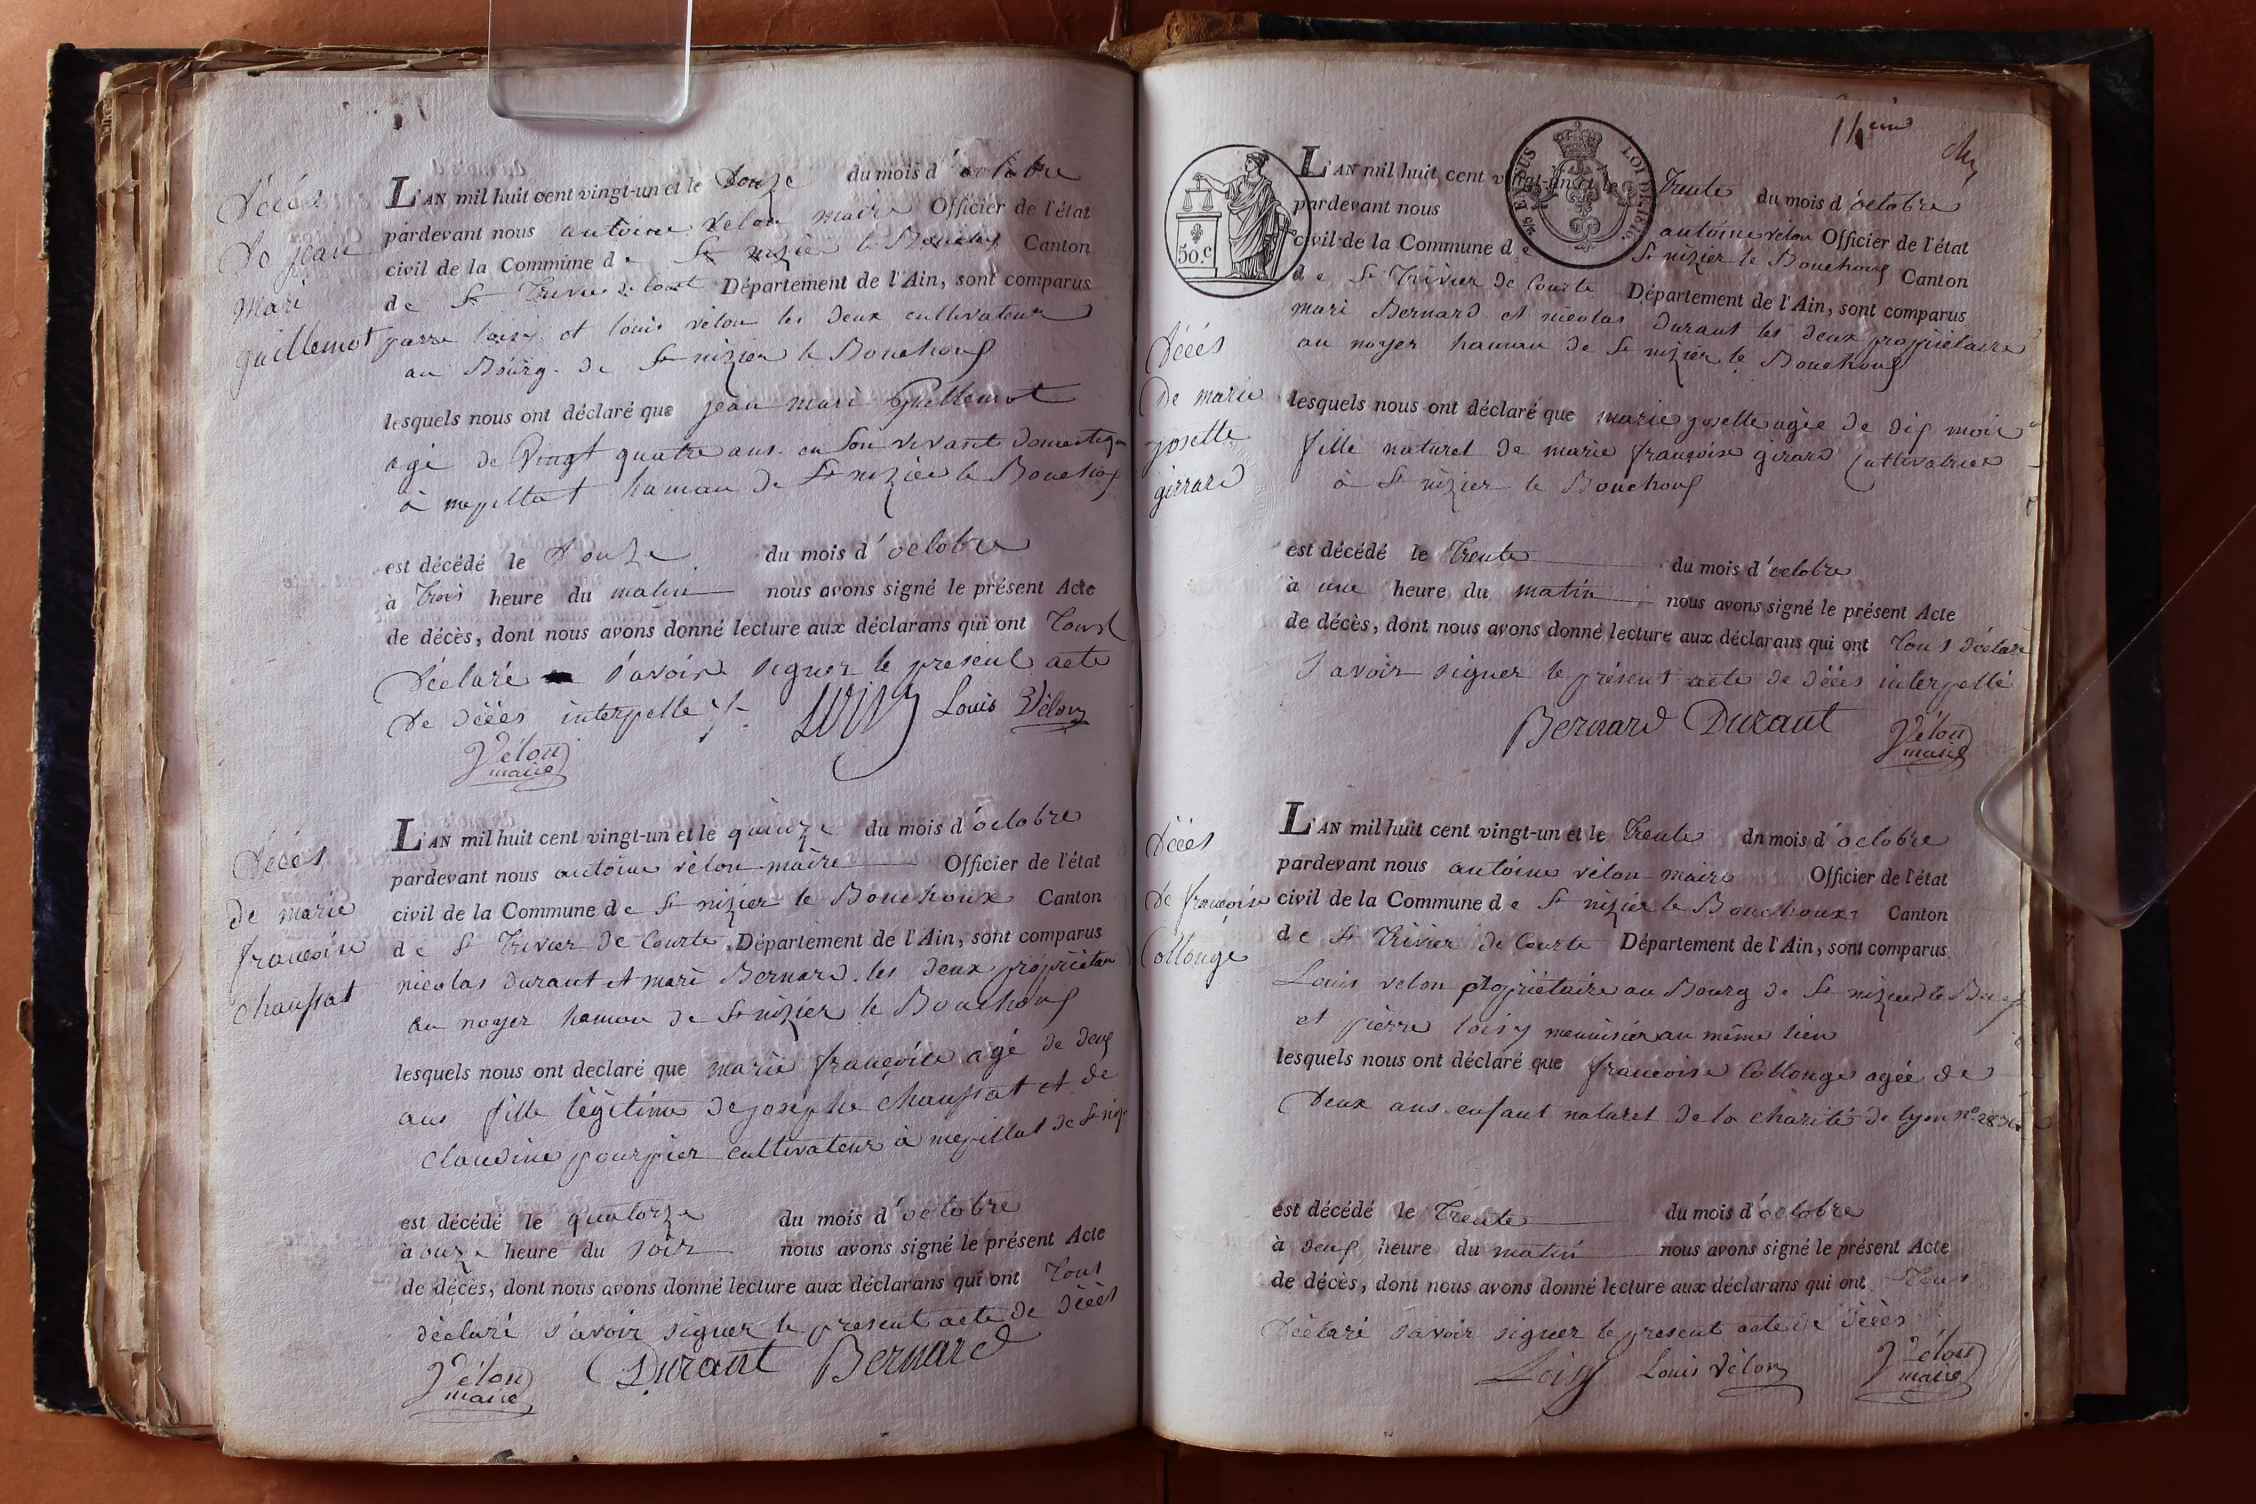 Décès
de jean
mari
guillemot
L'AN mil huit cent vingt-un et le Douze du mois d'octobre
pardevant nous antoine velon maire Officier de l'état
civil de la Commune de St nizier le Bouchoux Canton
de St Trivier de Court Département de l'Ain, sont comparus
loisy et louis vélon les deux cultivateur
au Bourg de St nizier le Bouchoux
lesquels nous ont déclaré que jean mari Guillemot
agé de vingt quatre ans en son vivant domestique
à mepillat hamau de St nizier le Bouchoux
est décédé le Douze du mois d'octobre
à Trois heure du matin nous avons signé le présent Acte
de décès, dont nous avons donné lecture aux déclarans qui ont Tous
Déclaré s'avoir signer le present acte
de décès interpellé
Loisy Louis Vélon
Vélon
maire
Décès
de marie
francoise
chaussat
L'AN mil huit cent vingt-un et le quinze du mois d'octobre
pardevant nous antoine vélon maire Officier de l'état
civil de la Commune de St nizier le Bouchoux Canton
de St Trivier de Courte Département de l'Ain, sont comparus
nicolas durant et mari Bernard les deux propriétaire
au noyer hamau de St nizier le Bouchoux
lesquels nous ont déclaré que marie françoise agé de deux
ans fille légitime de josephe chaussat et de
claudine pourpier cultivateur à mepillat de St niz
est décédé le quatorze du mois d'octobre
à onze heure du soir nous avons signé le présent Acte
de décès, dont nous avons donné lecture aux déclarans qui ont Tous
déclaré s'avoir signer le present acte de décès
Vélon
maire
Durant Bernard
14eme
50.c
EN SUS LOI DE 1816.
L'AN mil huit cent vingt-un et le Trente du mois d'octobre
pardevant nous antoine vélon Officier de l'état
civil de la Commune de St nizier le Bouchoux Canton
de St Trivier de Courte Département de l'Ain, sont comparus
mari Bernard et nicolas Durant les deux propriétaire
au noyer hamau de St nizier le Bouchoux
Décès
de marie
josette
girrard
lesquels nous ont déclaré que marie josette agée de dix mois
fille naturel de marie françoise girard Cultivatrice
à St nizier le Bouchoux
est décédé le Trente du mois d'octobre
à une heure du matin nous avons signé le présent Acte
de décès, dont nous avons donné lecture aux déclarans qui ont Tous déclaré
s'avoir signer le présent acte de décès interpellé
Bernard Durant
Vélon
maire
Décès
de francoise
Collonge
L'AN mil huit cent vingt-un et le Trente dn mois d'octobre
pardevant nous antoine vélon maire Officier de l'état
civil de la Commune de St nizier le Bouchoux Canton
de St Trivier de Courte Département de l'Ain, sont comparus
Louis velon propriétaire au Bourg de St nizier le
et pierre loisy menuisier au même lieu
lesquels nous ont déclaré que francoise Collonge agée de
Deux ans enfant naturel de la charité de lyon n°
est décédé le Trente du mois d'octobre
à deux heure du matin nous avons signé le présent Acte
de décès, dont nous avons donné lecture aux déclarans qui ont Tous
Déclaré s'avoir signer le present acte de décès
Loisy Louis Vélon
Vélon
maire